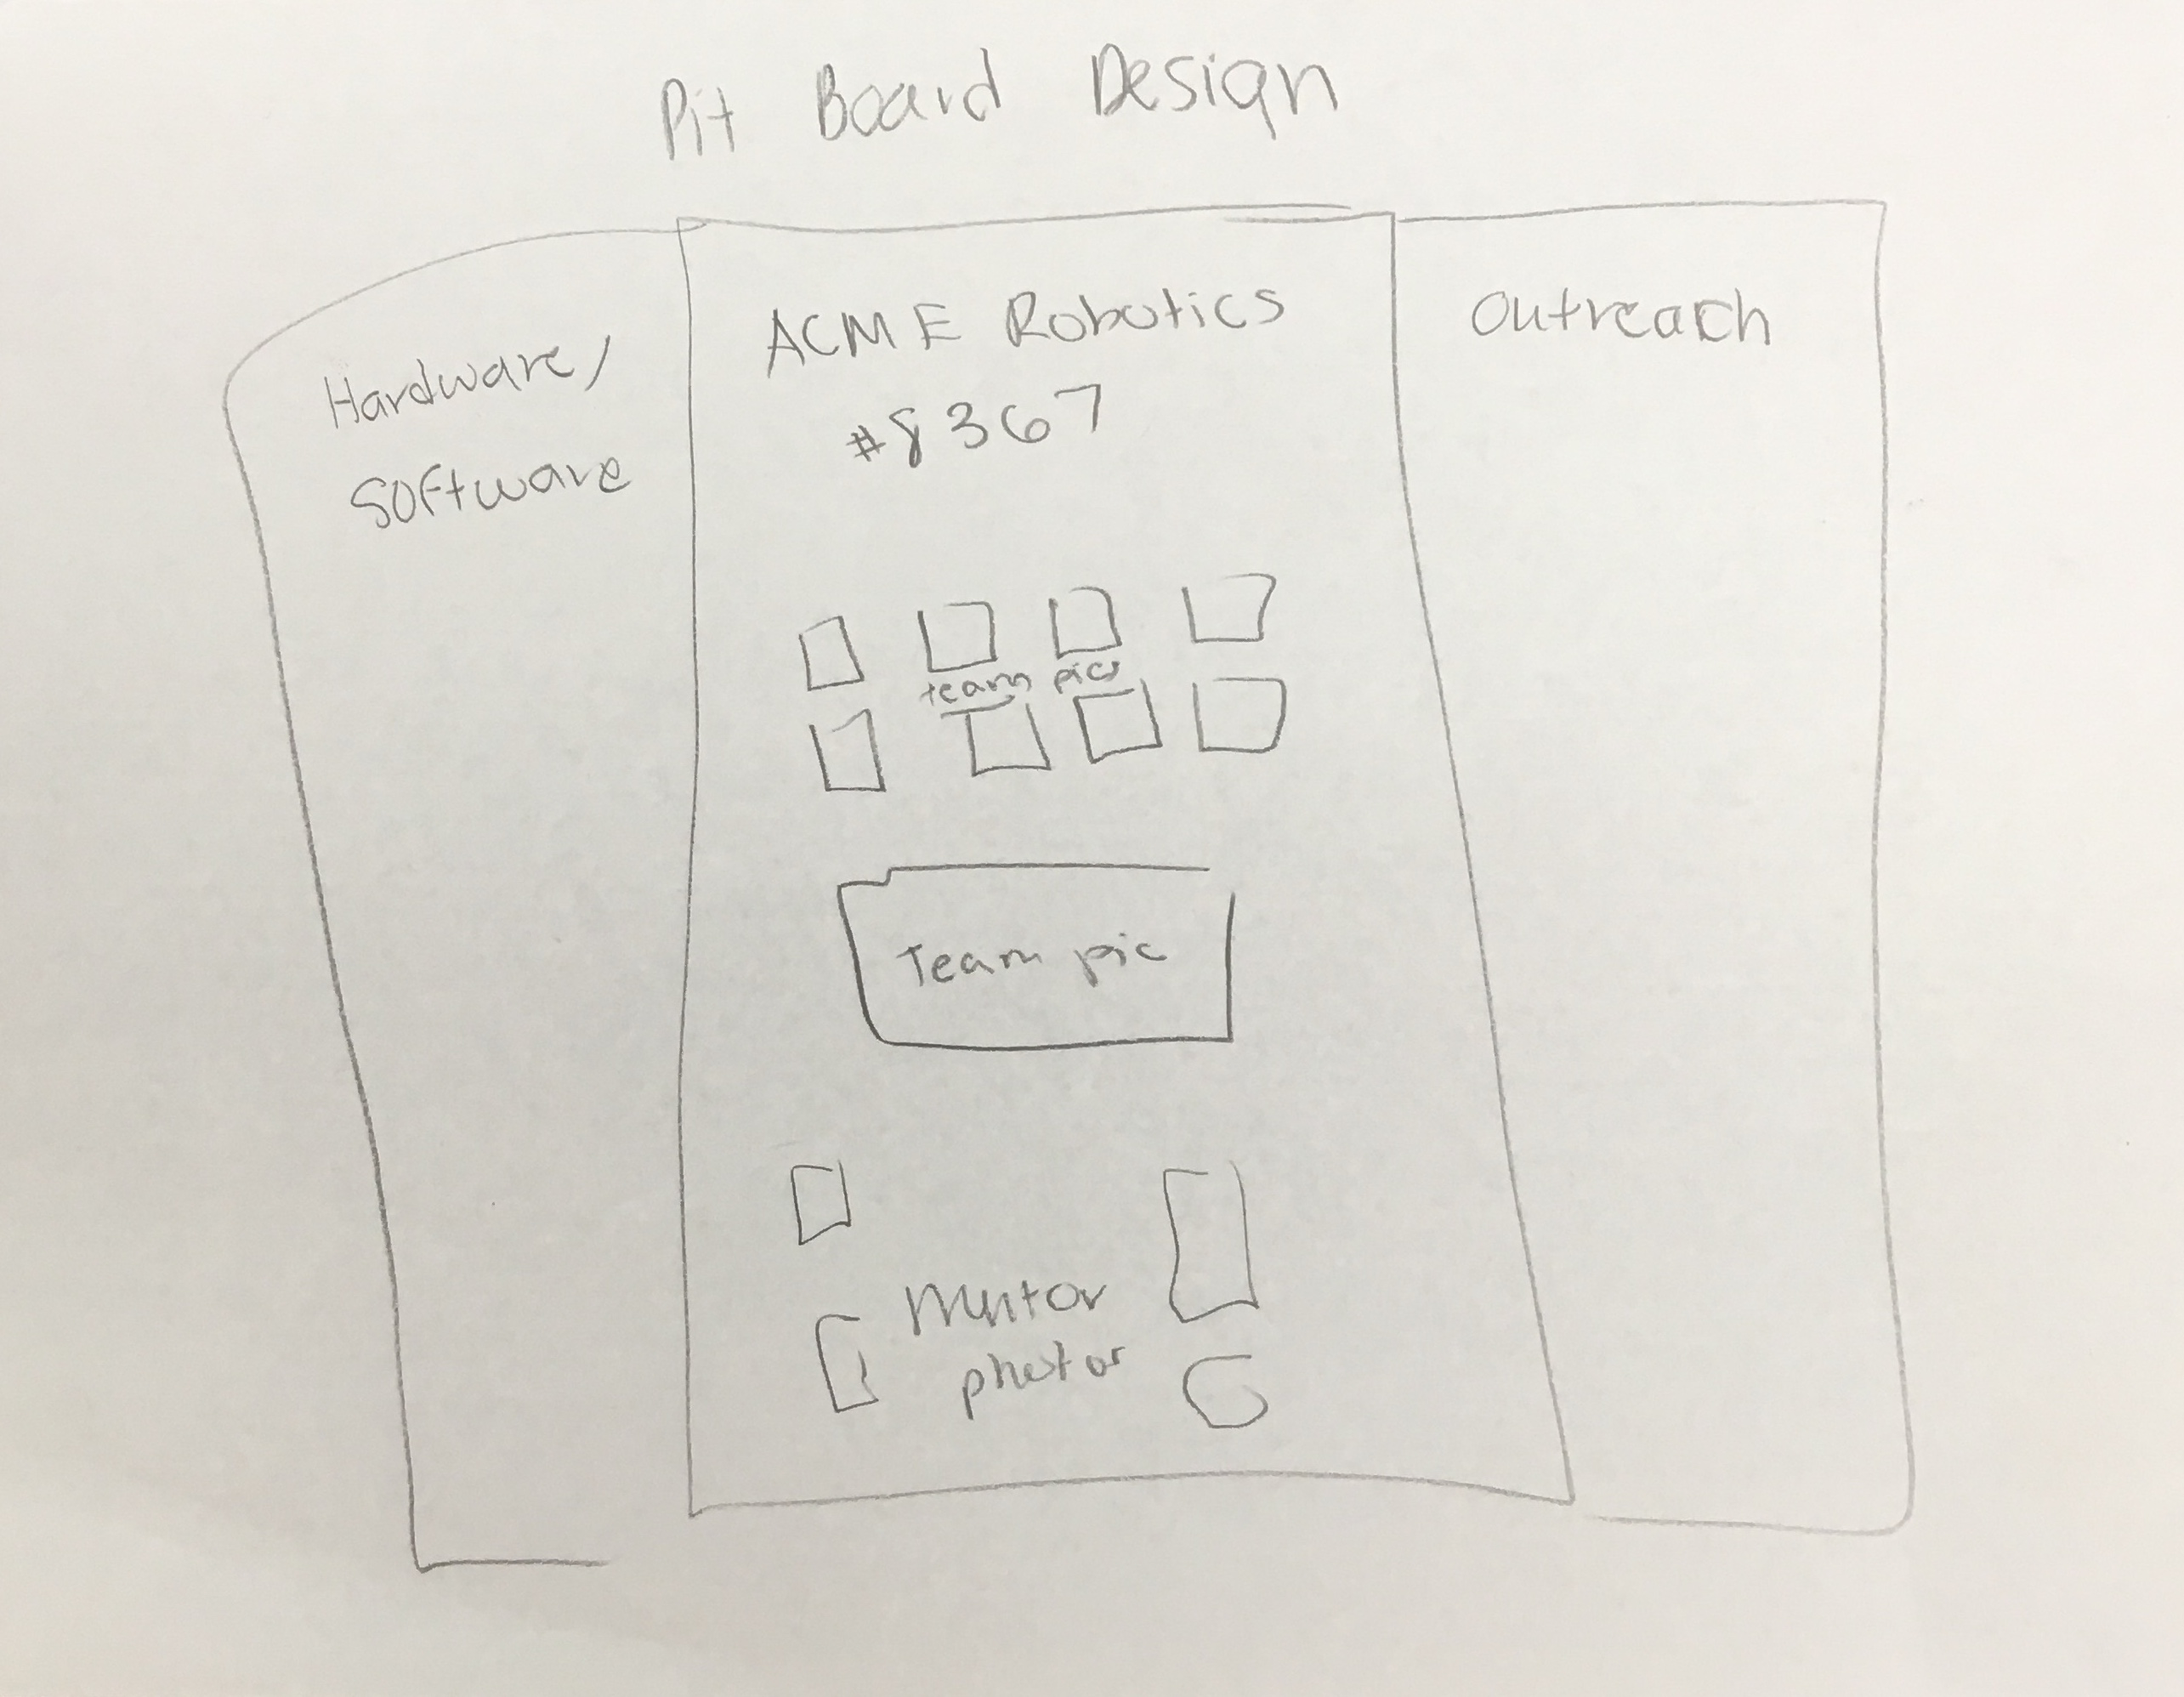 Pit Board Design
Hardware/
Software
ACME Robotics
#8367
team pics
Team pic
Mentor
photos
Outreach